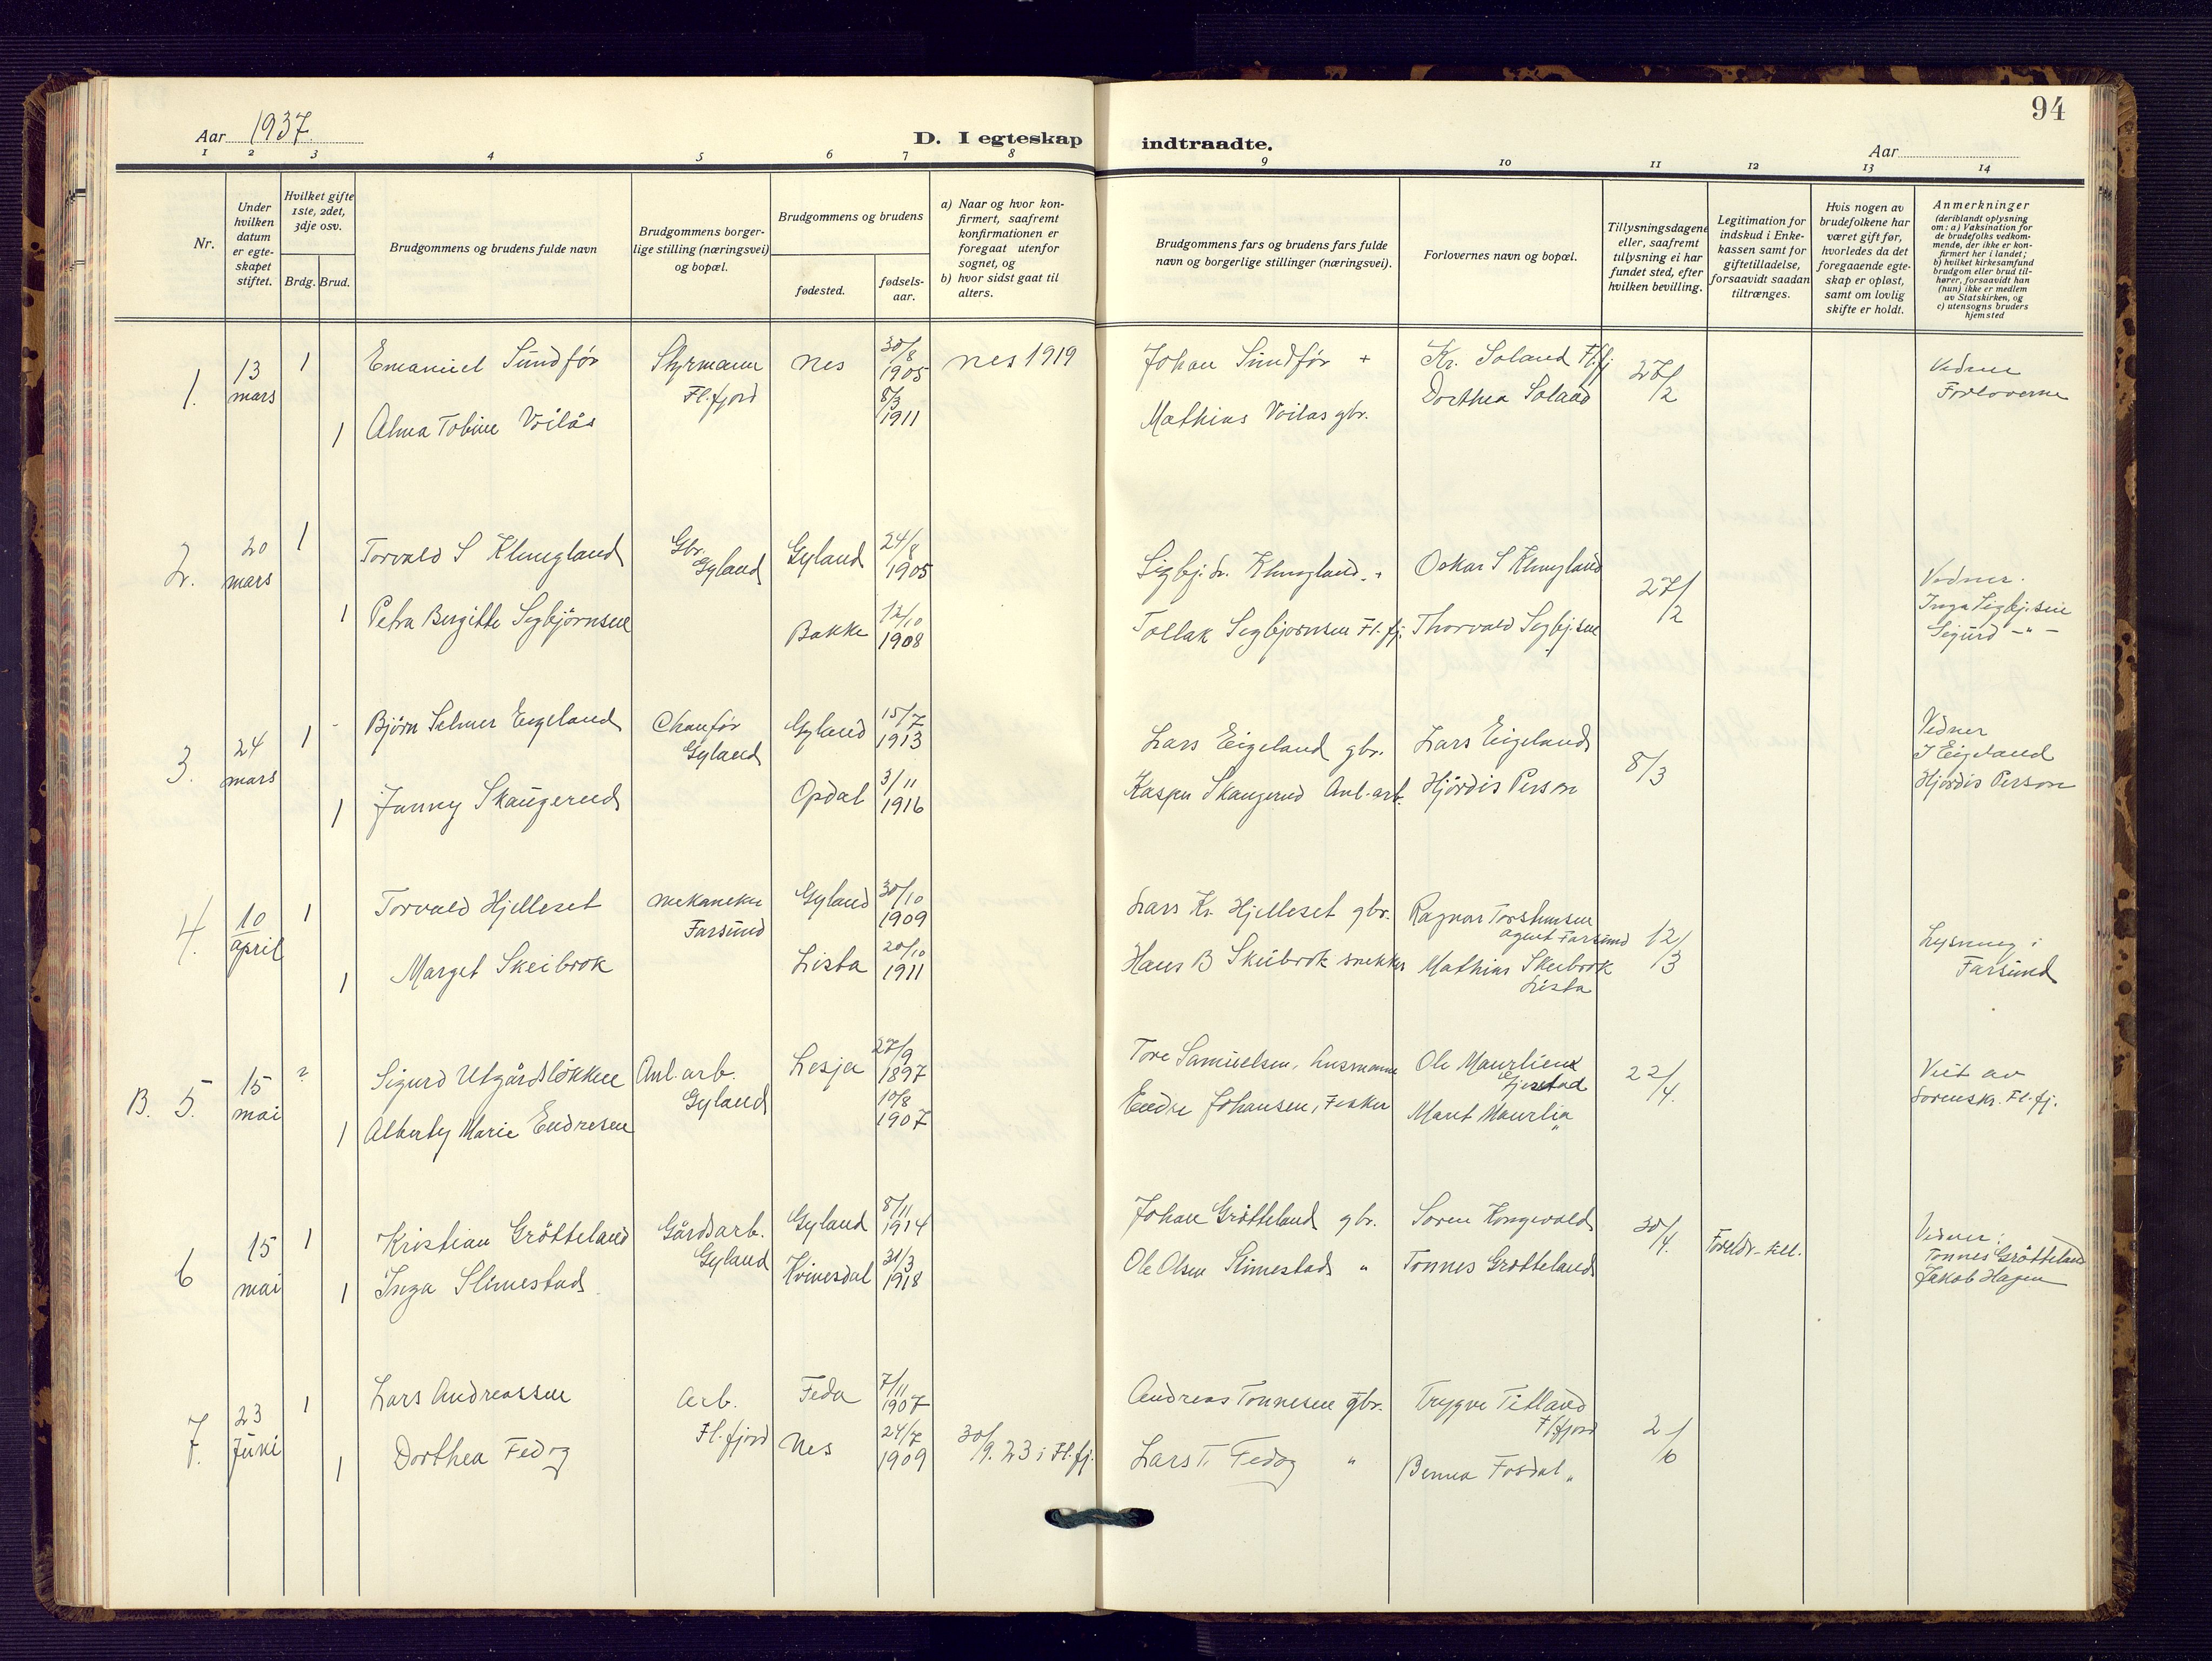 94
Aar 1937.
D. I egteskap indtraadte.
Aar
1 2 3 4 5 6 7 8 9 10 11 12 13 14
Nr.
Under hvilken datum er egteskapet stiftet.
Hvilket gifte 1ste, 2det, 3dje osv.
Brdg. Brud.
Brudgommens og brudens fulde navn
Brudgommens borgerlige stilling (næringsvei) og bopæl.
Brudgommens og brudens
fødested.
fødselsaar.
a) Naar og hvor konfirmert, saafremt konfirmationen er foregaat utenfor sognet, og
b) hvor sidst gaat til alters.
Brudgommens fars og brudens fars fulde navn og borgerlige stillinger (næringsvei).
Forlovernes navn og bopæl.
Tillysningsdagene eller, saafremt tillysning ei har fundet sted, efter hvilken bevilling.
Legitimation for indskud i Enkekassen samt for giftetilladelse, forsaavidt saadan tiltrænges.
Hvis nogen av brudefolkene har været gift før, hvorledes da det foregaaende egteskap er opløst, samt om lovlig skifte er holdt.
Anmerkninger
(deriblandt oplysning om: a) Vaksination for de brudefolks vedkommende, der ikke er konfirmert her i landet;
b) hvilket kirkesamfund brudgom eller brud tilhører, forsaavidt han (hun) ikke er medlem av Statskirken, og
c) utensogns bruders hjemsted
1. 13 mars 1 Emanuel Sundför Styrmann Fl.fjord Nes 30/8 1905 Nes 1919 Johan Sundför + Kr. Soland Fl.fj 27/2 Vidner Forloverne
1 Alma Tobine Voilås 8/3 1911 Mathias Voilas gbr. Dorthea Soland
2. 20 mars 1 Torvald S Klungland Gbr. Gyland Gyland 24/8 1905 Sigbj. Klungland. + Oskar S Klungland 27/2 Vidner. Inga Sigbj.sen
1 Petra Bergitte Segbjörnsen Bakke 12/10 1908 Tollak Segbjørnsen Fl.fj. Thorvald Segbj.sen Sigurd -"-
3. 24 mars 1 - Björn Selmer Eigeland Chauför Gyland Gyland 15/7 1913 Lars Eigeland gbr. Lars Eigeland 8/3 Vidner J Eigeland
1 Janny Skaugerud Opdal 3/11 1916 Kasper Skaugerud Anl.arb. Hjördis Person Hjördis Person
4. 10 april 1 Torvald Hjelleset Mekaneker Farsund Gyland 30/10 1909 Lars Kr. Hjelleset gbr. Ragnar Torstensen agent Farsund 12/3 Lysning i Farsund
1 Marget Skeibrok Lista 20/10 1911 Hans B Skeibrok snekker Mathias Skeibrok Lista
B. 5. 15 mai 2 Sigurd Utgårdsløkken Anl.arb. Gyland Lesja 27/9 1897 Tore Samuelsen, husmann Ole Maurlien 22/4. Viet av Sorenskr. Fl.fj.
1 Alberty Marie Endresen 10/8 1907 Endre Johansen, Fisker Marit Maurlia "
6 15 mai 1 Kristian Grötteland Gårdsarb. Gyland Gyland 8/11 1914 Johan Grötteland gbr. Soren Kongevold 30/4. Foreldr. till. Vidner: Tønnes Grötteland
1 Inga Slimestad Kvinesdal 31/3 1918 Ole Olsen Slimestad " Tønnes Grotteland Jakob Hagen
7. 23 Juni 1 Lars Andreassen Arb. Fl.fjord Feda 7/11 1907 Andreas Tonnesen gbr. Trygve Titland Flfjord 2/6
1 Dorthea Fedog Nes 24/7 1909 30/9. 23 i Fl.fj. Lars T. Fedog " Benna Fosdal "